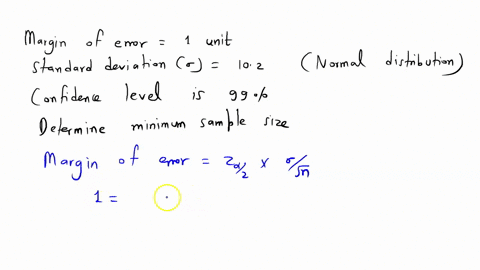 Margin of error = 1 unit
Standard deviation (σ) = 10.2 (Normal distribution)
Confidence level is 99%
Determine minimum sample size
Margin of error = z_{α/2} × σ/√n
1 =